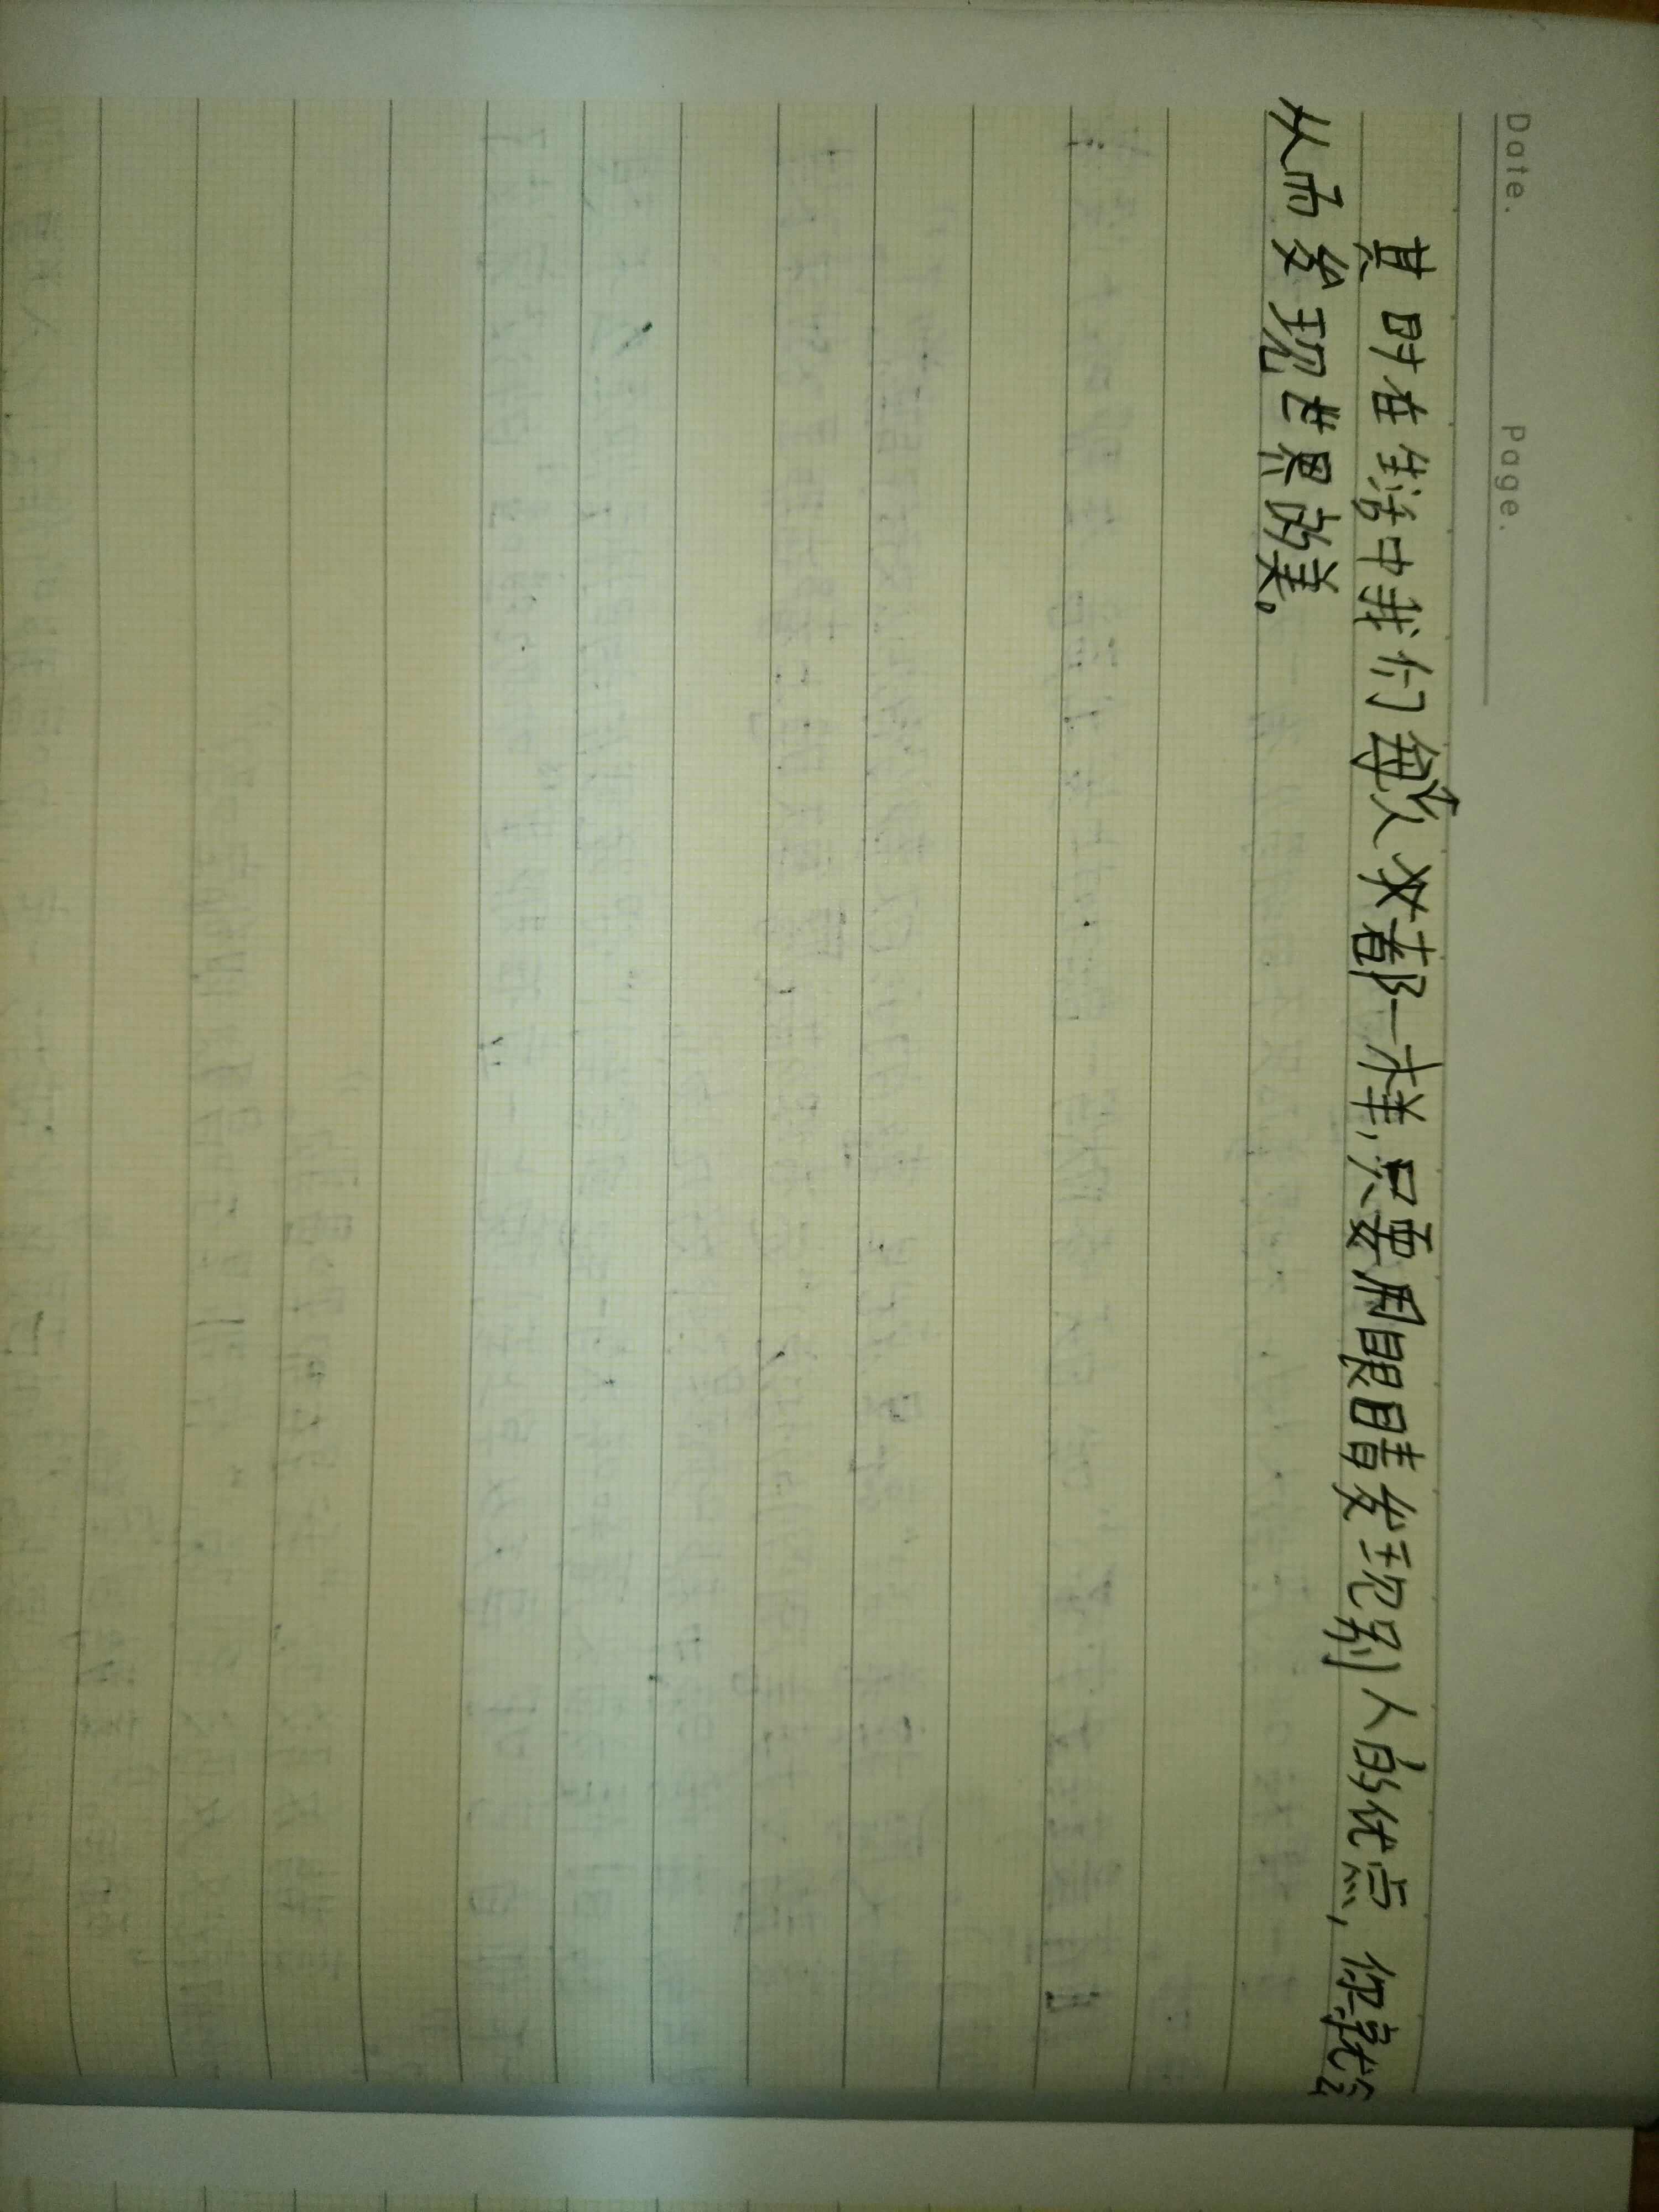 Date. Page.
其时在生活中我们每个人都一样,只要用眼睛发现别人的优点,你就会
从而发现世界的美。